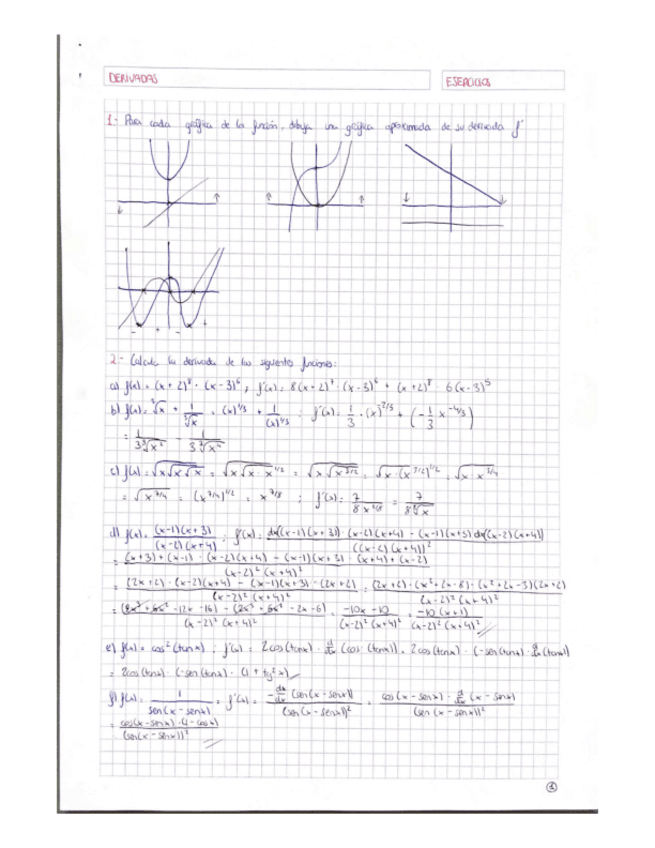 DERIVADAS
EJERCICIOS
1.- Para cada gráfica de la función, dibuja una gráfica aproximada de su derivada f'
- + - +
2.- Calcula la derivada de las siguientes funciones:
a) f(x) = (x+2)⁸ · (x-3)⁶ ; f'(x) = 8(x+2)⁷ · (x-3)⁶ + (x+2)⁸ · 6(x-3)⁵
b) f(x) = ∛x + 1/∛x = (x)^1/3 + 1/(x)^1/3 ; f'(x) = 1/3 · (x)^-2/3 + (-1/3 x^-4/3)
= 1/3∛x² - 1/3∛x⁴
c) f(x) = √x√x√x = √x√x·x^1/2 = √x√x^3/2 = √x·(x^3/2)^1/2 = √x·x^3/4
= √x^7/4 = (x^7/4)^1/2 = x^7/8 ; f'(x) = 7/8x^1/8 = 7/8⁸√x
d) f(x) = (x-1)(x+3)/(x-2)(x+4) ; f'(x) = dx((x-1)(x+3)) · (x-2)(x+4) - (x-1)(x+3) dx((x-2)(x+4))/((x-2)(x+4))²
= (x+3)+(x-1) · (x-2)(x+4) - (x-1)(x+3) · (x+4)+(x-2)/(x-2)²(x+4)²
= (2x+2) · (x-2)(x+4) - (x-1)(x+3) · (2x+2)/(x-2)²(x+4)² = (2x+2) · (x²+2x-8) - (x²+2x-3)(2x+2)/(x-2)²(x+4)²
= -12x -16) - -2x -6)/(x-2)²(x+4)² = -10x-10/(x-2)²(x+4)² = -10(x+1)/(x-2)²(x+4)²
e) f(x) = cos²(tanx) ; f'(x) = 2cos(tanx) · d/dx (cos(tanx)) = 2cos(tanx) · (-sen(tanx) · d/dx (tanx))
= 2cos(tanx) · (-sen(tanx) · (1+tg²x)
f) f(x) = 1/sen(x-senx) = f'(x) = -d/dx (sen(x-senx))/(sen(x-senx))² = cos(x-senx) · d/dx (x-senx)/(sen(x-senx))²
= cos(x-senx) · (1-cosx)/(sen(x-senx))²
1